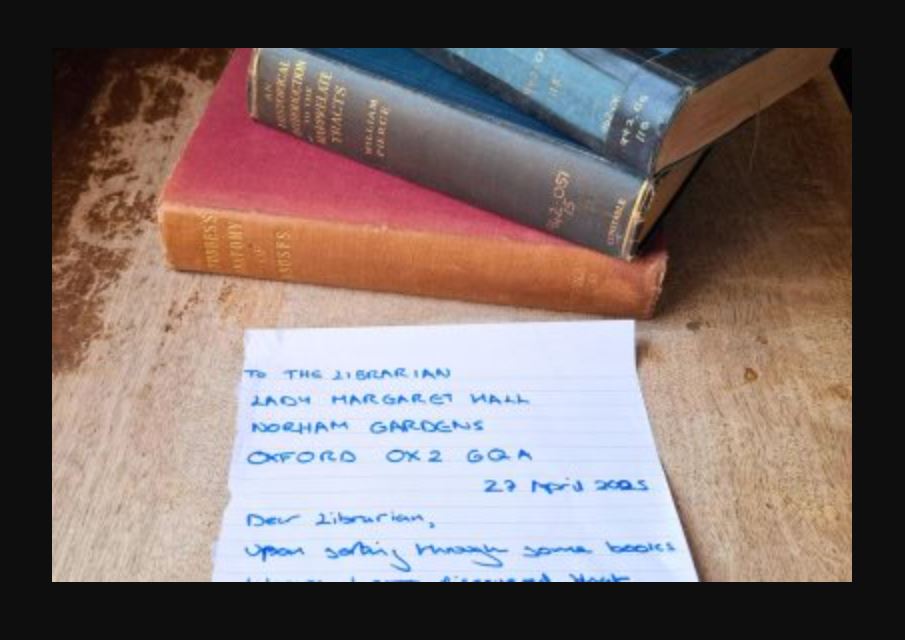 AN
HISTORICAL
INTRODUCTION
TO THE
MARPRELATE
TRACTS
WILLIAM
PIERCE
CONSTABLE
TO THE LIBRARIAN
LADY MARGARET HALL
NORHAM GARDENS
OXFORD OX2 6QA
27 April 2025
Dear Librarian,
Upon sorting through some books
discovered that